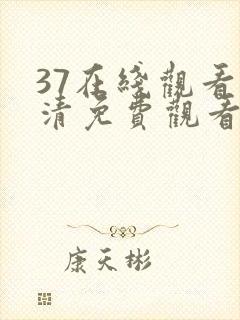 37在綫觀看
清免費觀看
康天彬